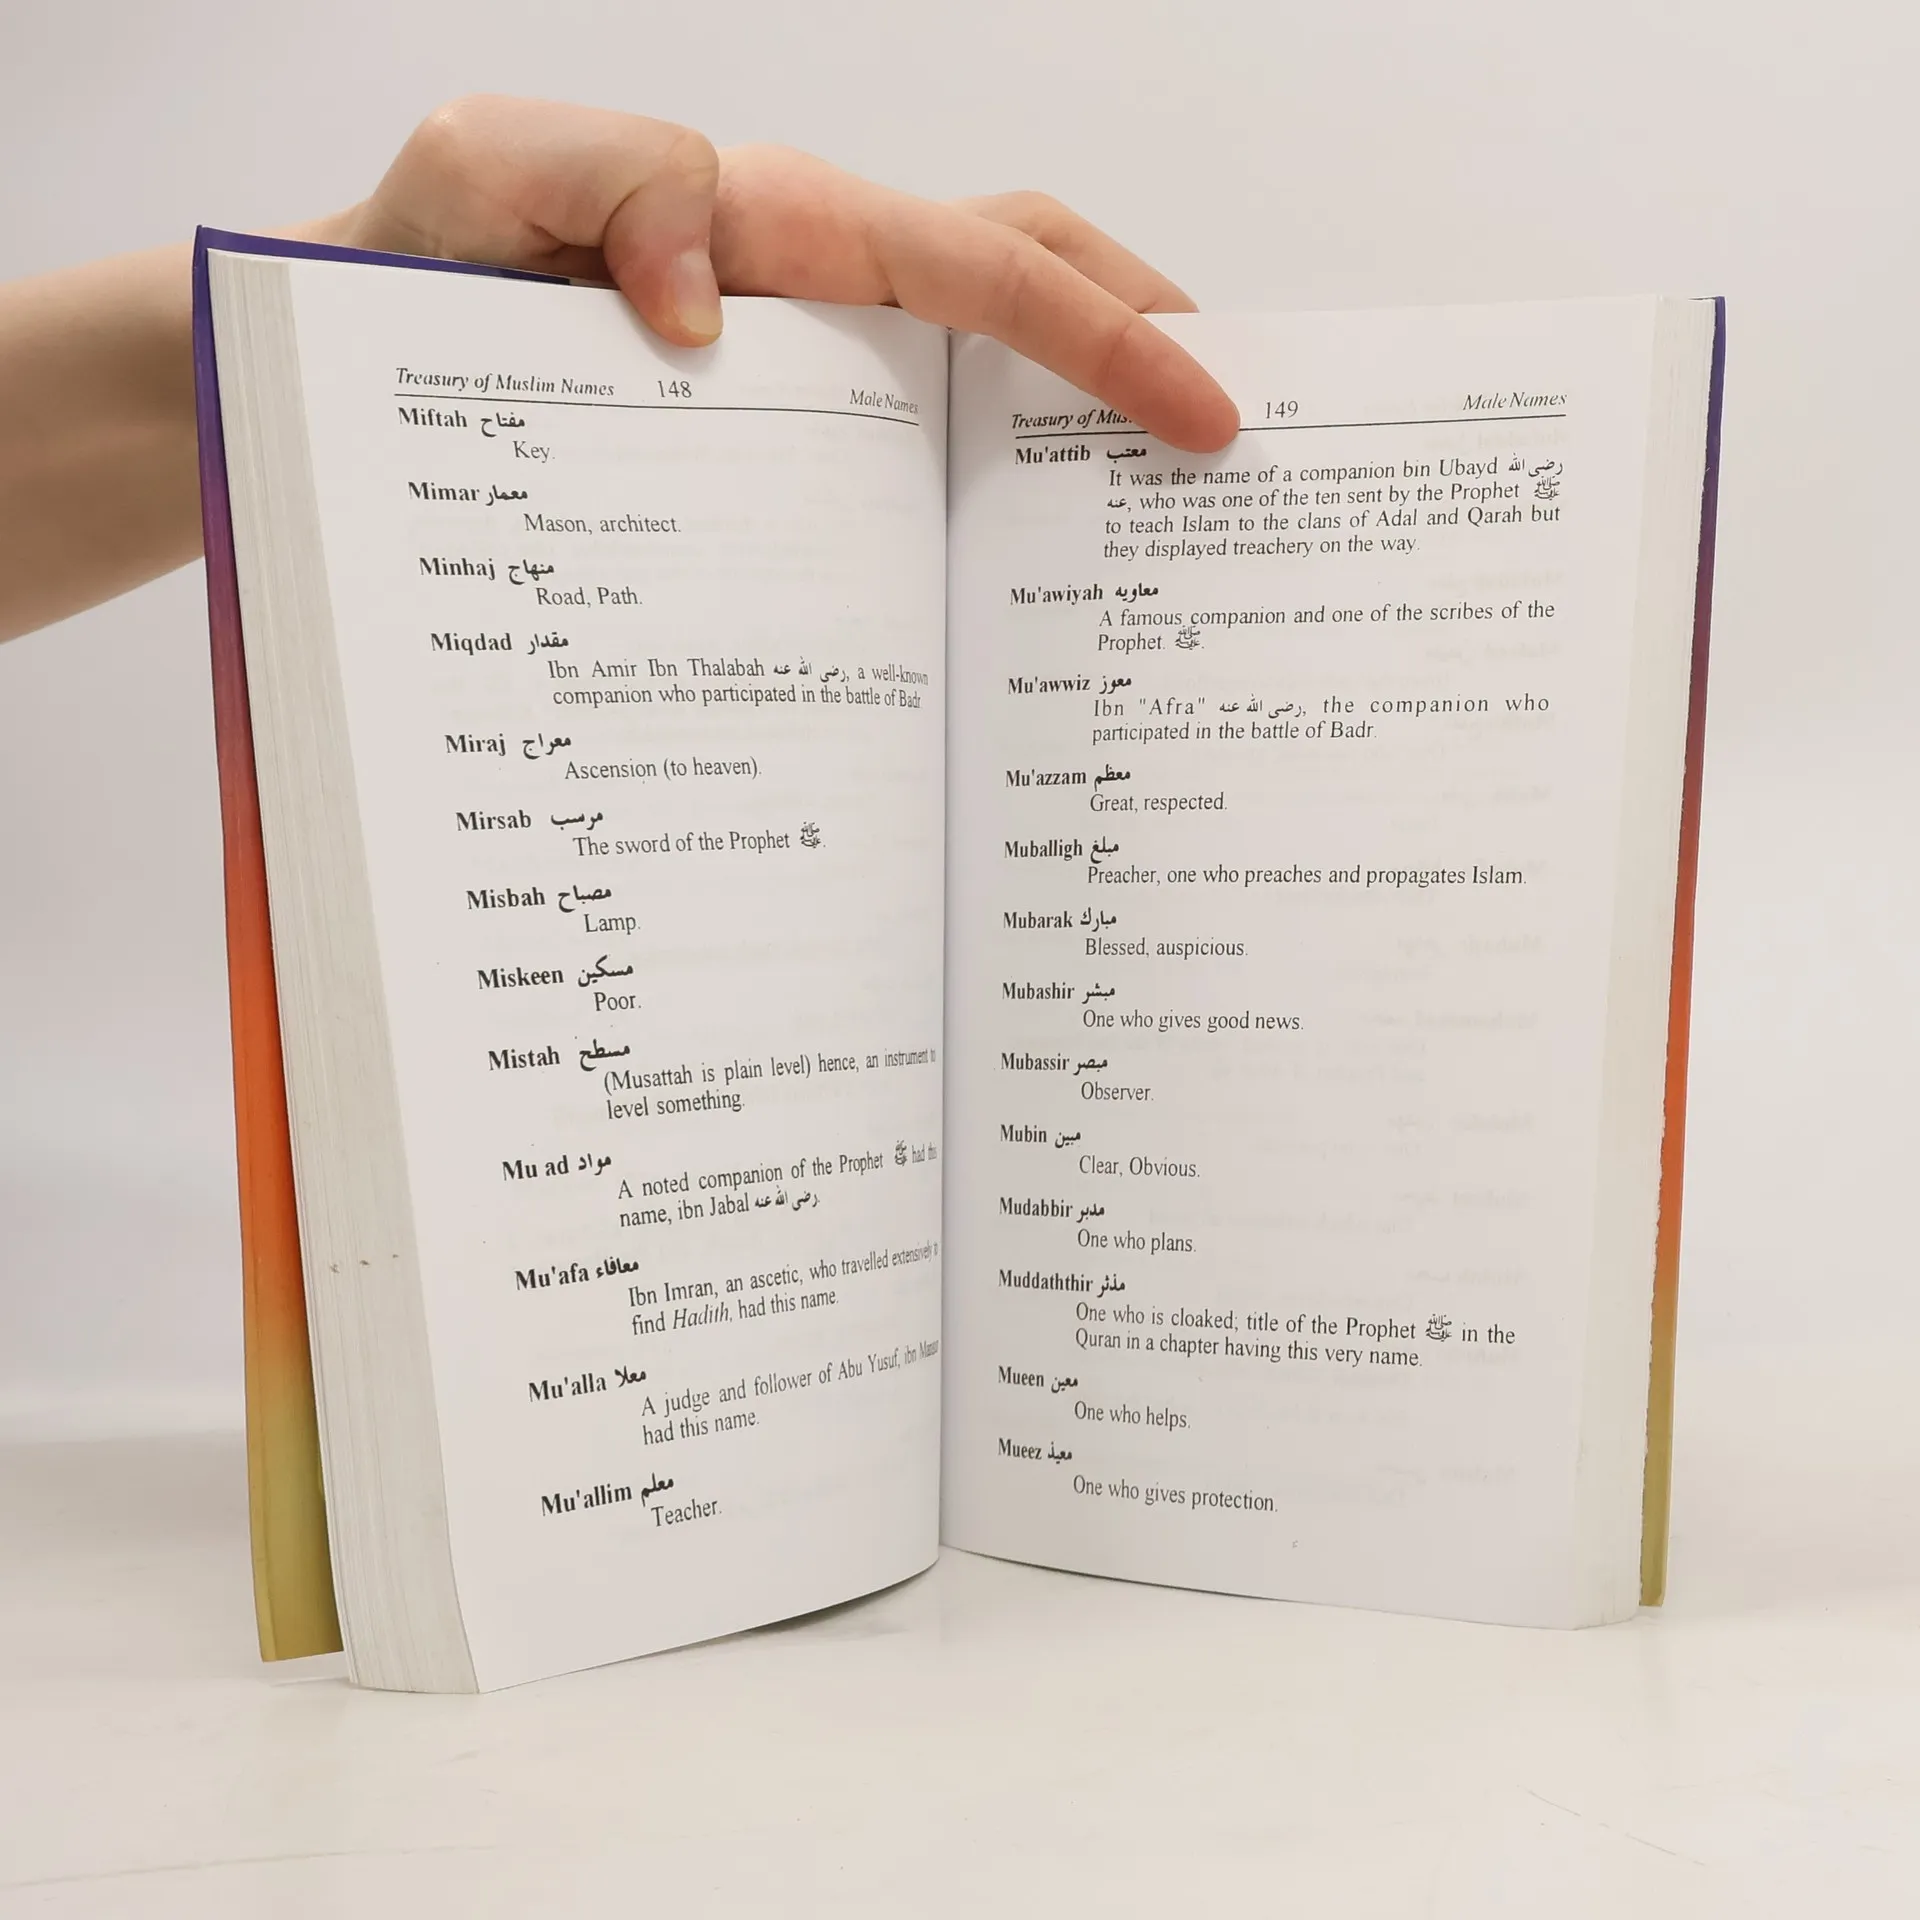 Treasury of Muslim Names 148 Male Names
Miftah مفتاح
Key.
Mimar معمار
Mason, architect.
Minhaj منهاج
Road, Path.
Miqdad مقدار
Ibn Amir Ibn Thalabah رضى الله عنه, a well-known
companion who participated in the battle of Badr
Miraj معراج
Ascension (to heaven).
Mirsab مرسب
The sword of the Prophet ﷺ.
Misbah مصباح
Lamp.
Miskeen مسكين
Poor.
Mistah مسطح
(Musattah is plain level) hence, an instrument to
level something.
Mu ad مواد
A noted companion of the Prophet ﷺ had this
name, ibn Jabal رضى الله عنه.
Mu'afa معافاء
Ibn Imran, an ascetic, who travelled extensively to
find Hadith, had this name.
Mu'alla معلا
A judge and follower of Abu Yusuf, ibn Mansur
had this name.
Mu'allim معلم
Teacher.
Treasury of Mus 149 Male Names
Mu'attib معتب
It was the name of a companion bin Ubayd رضى الله
عنه, who was one of the ten sent by the Prophet ﷺ
to teach Islam to the clans of Adal and Qarah but
they displayed treachery on the way.
Mu'awiyah معاويه
A famous companion and one of the scribes of the
Prophet. ﷺ.
Mu'awwiz معوز
Ibn "Afra" رضى الله عنه, the companion who
participated in the battle of Badr.
Mu'azzam معظم
Great, respected.
Muballigh مبلغ
Preacher, one who preaches and propagates Islam.
Mubarak مبارك
Blessed, auspicious.
Mubashir مبشر
One who gives good news.
Mubassir مبصر
Observer.
Mubin مبين
Clear, Obvious.
Mudabbir مدبر
One who plans.
Muddaththir مدثر
One who is cloaked; title of the Prophet ﷺ in the
Quran in a chapter having this very name.
Mueen معين
One who helps.
Mueez معيذ
One who gives protection.